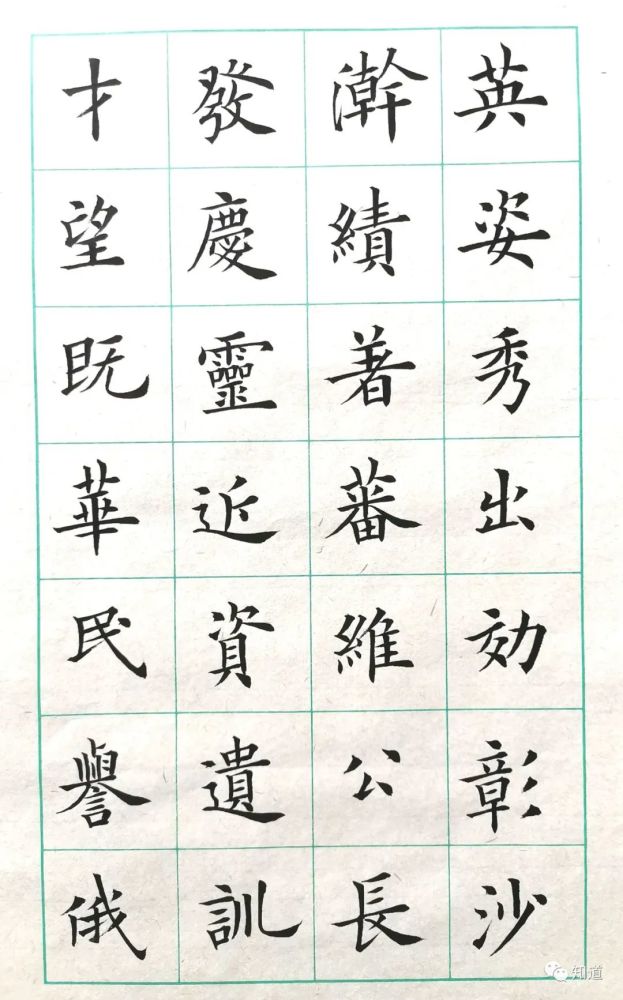 英姿秀出効彰沙
澣績著蕃維公長
發慶靈近資遺訓
才望既華民譽俄
知道